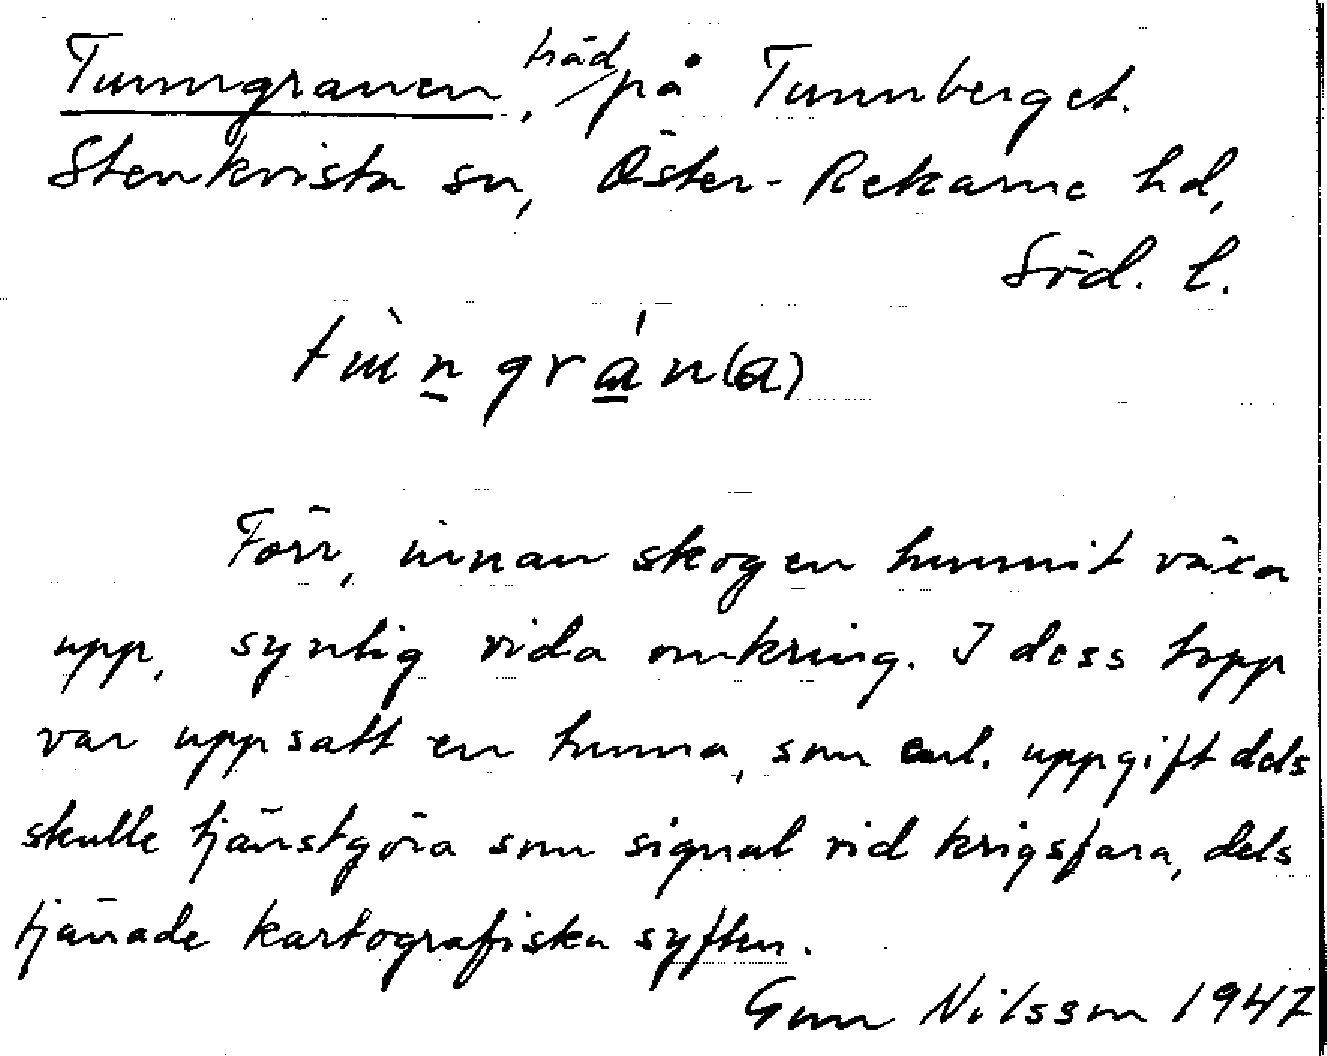 Tunngranen, träd på Tunnberget.
Stenkvista sn, Öster-Rekarne hd,
Söd. l.
Förr, innan skogen hunnit växa
upp, synlig vida omkring. I dess topp
var uppsatt en tunna, som enl. uppgift dels
skulle tjänstgöra som signal vid krigsfara, dels
tjänade kartografiska syften.
Gunn Nilsson 1947